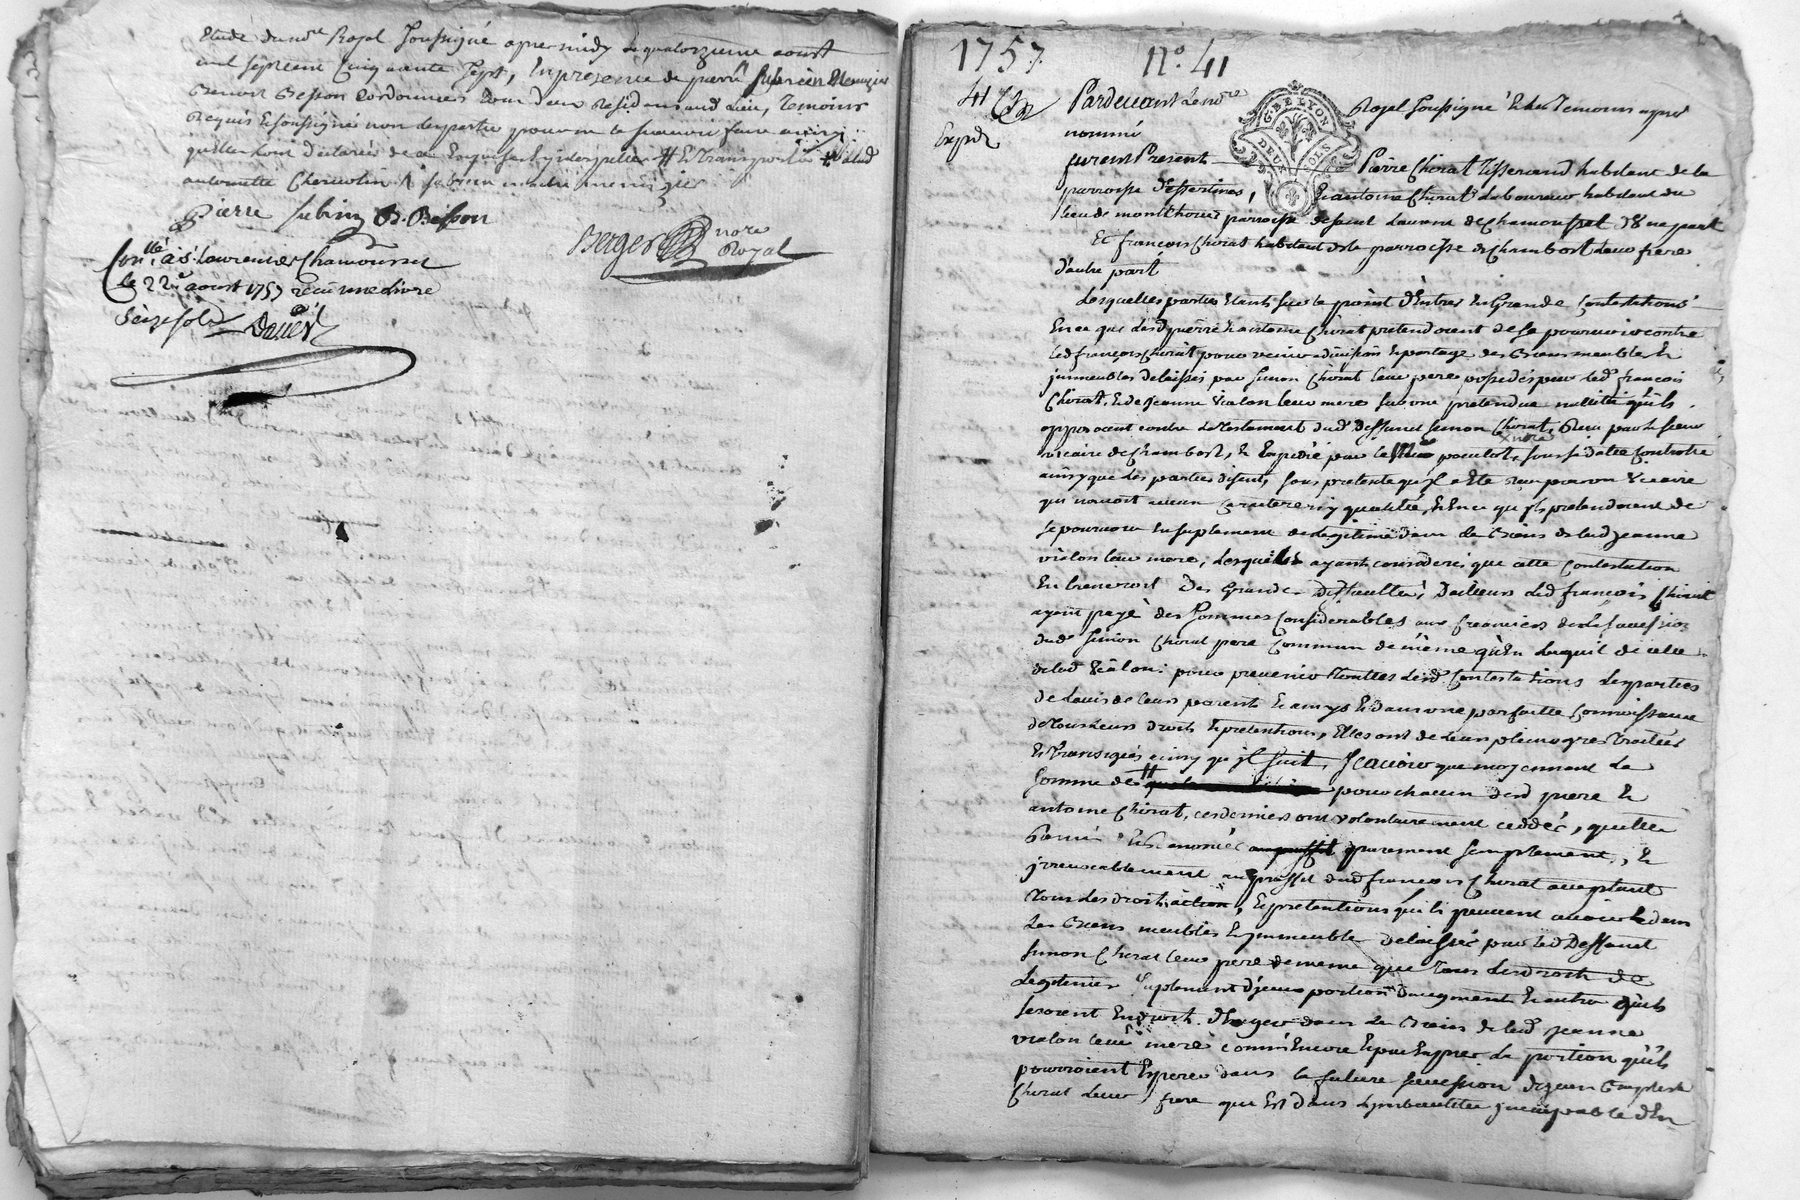 Etude du no.re Royal soussigné apres midy le quatorzieme aoust
mil sept cent cinquante sept, en presence de pierre subrin Menuizier
Benoit Besson Cordonnier tous deux Residans aud. Lieu, Temoins
Requis & soussignés non les parties pour ne le scavoir faire ainsy
quelles ont declaré de ce Enquises & interpellés
antoinette subrin
Pierre Subrin B. Besson
Berger no.re Royal
Con.llé a S.t Laurent de Chamousset
le 22.e aoust 1757 recu une livre
seize sols
1757. N.o 41
41
Exped.
Pardevant le no.re Royal soussigné & les Temoins apres
nommé
G. DE LYON
DEUX SOLS
furent Present Pierre Chirat Tisserand habitant de la
parroisse d'essertines, & antoine Chirat Laboureur habitant du
lieu de monthoud parroisse de saint Laurent de Chamousset d'une part
Et françois Chirat habitant de la parroisse de Chambost leur frere
d'autre part
Lesquelles parties etants sur le point d'Entrer En Grande Contestations
En ce que lesd. pierre & antoine Chirat pretendoient de se pourvoir contre
led. françois Chirat pour venir a division & partage des Biens meubles &
immeubles delaissés par simon Chirat leur pere possedés par led. françois
Chirat, & de jeanne vialon leur mere sur une pretendue nullité qu'ils
opposoient contre le Testament dud. deffunt simon Chirat, Recu par le sieur
vicaire de Chambost, & Expedié par le no.re sous sa datte Controllé
ainsy que les parties disent, sous pretexte qu'il a Eté recu par un vicaire
qui n'avoit aucun Caractere ny qualité, & En ce qu'ils pretendoient de
se pourvoir En suplement de Legitime dans les Biens de lad. jeanne
vialon leur mere, Lesquelles ayant consideré que cette Contestation
Entraineroit Des Grandes Difficultés, D'ailleurs led. françois Chirat
ayant payé des sommes Considerables aux Creanciers de la succession
dud. simon Chirat pere Commun de même qu'En l'acquit de celle
de lad. vialon: pour prevenir Toutes lesd. Contestations les parties
de L'avis de leurs parents & amys & dans une parfaite Connoissance
de Tous leurs droits & pretentions, Elles ont de leurs pleins gres Traitées
& Transigées ainsy qu'il suit, Scavoir que moyennant la
somme de pour chacun desd. pierre &
antoine Chirat, ces derniers ont volontairement ceddés, quittés
Remis & Renoncés purement simplement, &
irrevocablement au proffit dud. françois Chirat acceptant
Tous les droits, action, & pretentions qu'ils peuvent avoir dans
les Biens meubles & immeubles delaissés par led. Deffunt
simon Chirat leur pere de meme que Tous les droits de
Legitime suplement d'jcelle portion d'augment & autre qu'ils
seroient En droit d'Exiger dans les Biens de lad. jeanne
vialon leur mere comm'Encore & par Exprès la portion qu'ils
pourroient Esperer dans la future succession de jean Baptiste
Chirat leur frere qui Est dans l'imbecillité incapable d'En